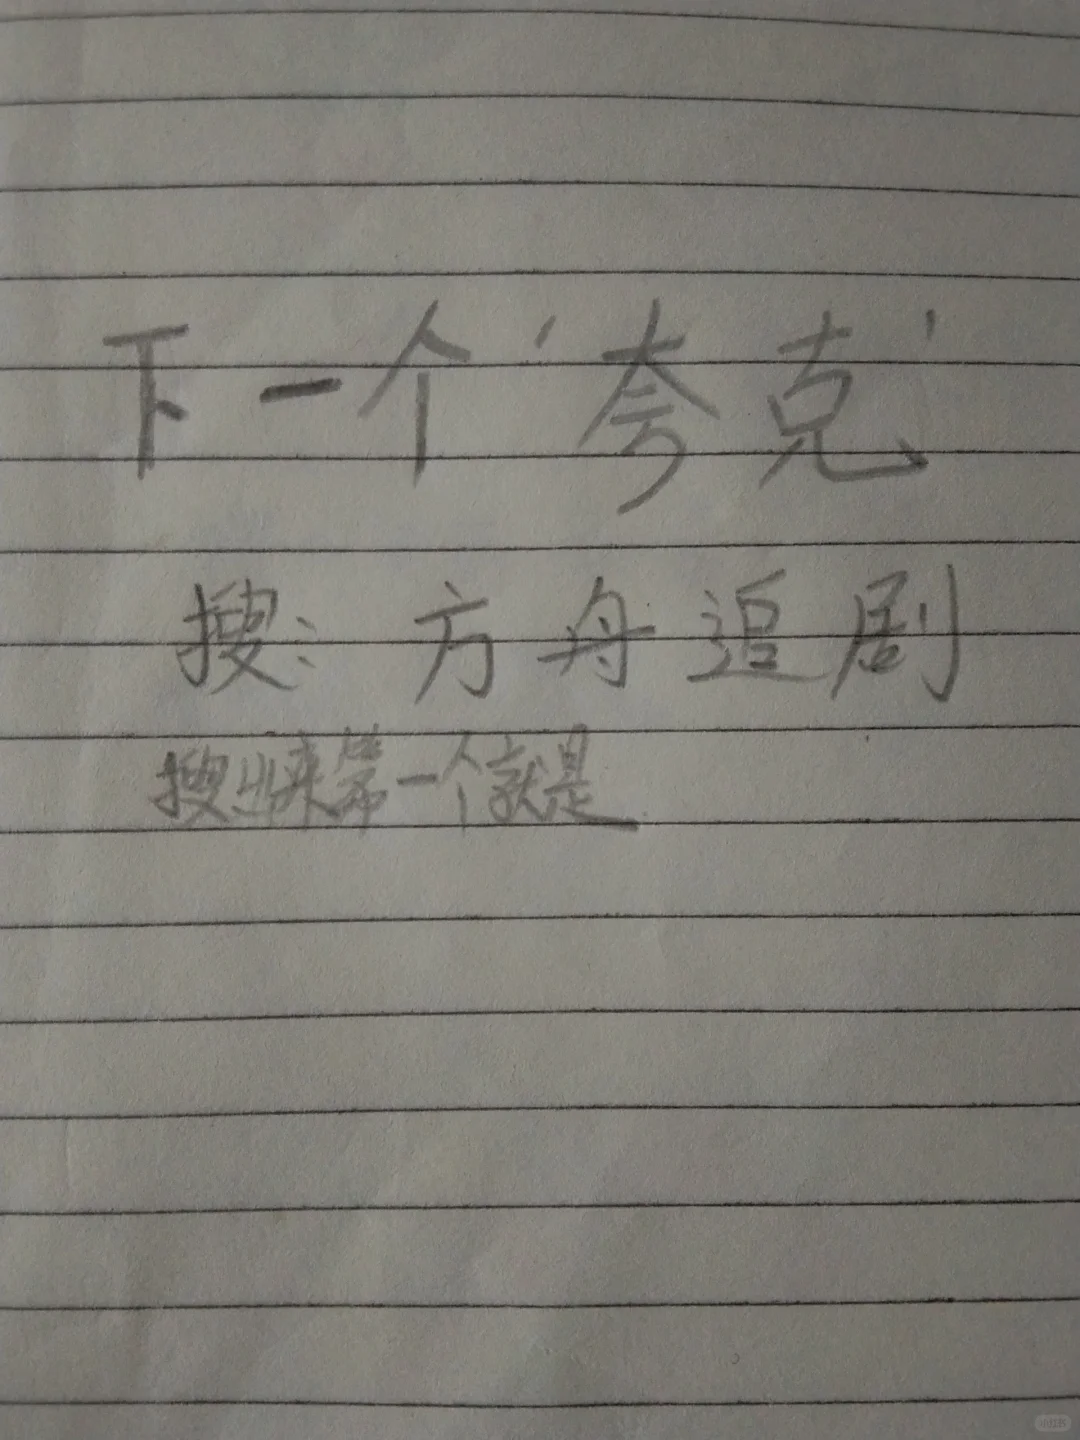 下一个'夸克'
搜：方舟追剧
搜出来第一个就是
小红书